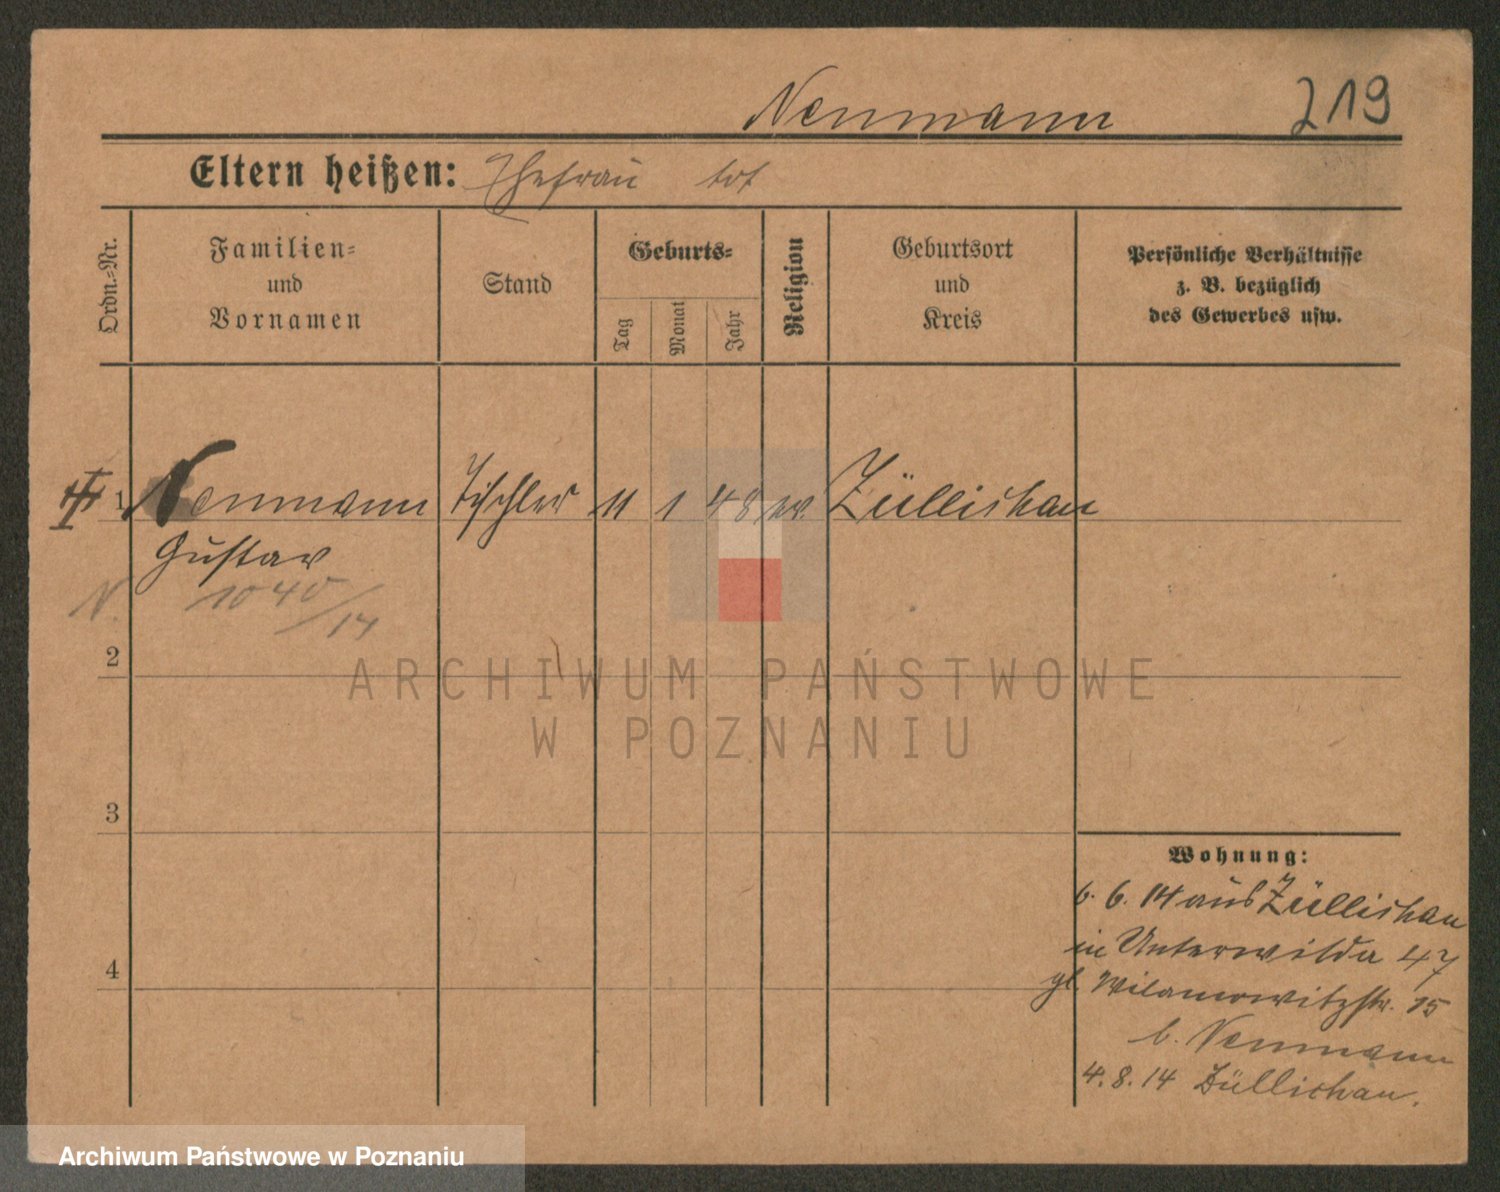 Neumann 219
Eltern heißen: Ehefrau tot
Ordn.-Nr.
Familien-
und
Vornamen
Stand
Geburts-
Tag
Monat
Jahr
Religion
Geburtsort
und
Kreis
Persönliche Verhältnisse
z. B. bezüglich
des Gewerbes usw.
1 Neumann Tischler 11 1 48 ev. Züllichau
Gustav
N. 1040/14
2
3
4
Wohnung:
6. 6. 14 aus Züllichau
in Unterwilda 47
gl. Wilamowitzstr. 15
b. Neumann
4. 8. 14 Züllichau.
ARCHIWUM PAŃSTWOWE
W POZNANIU
Archiwum Państwowe w Poznaniu